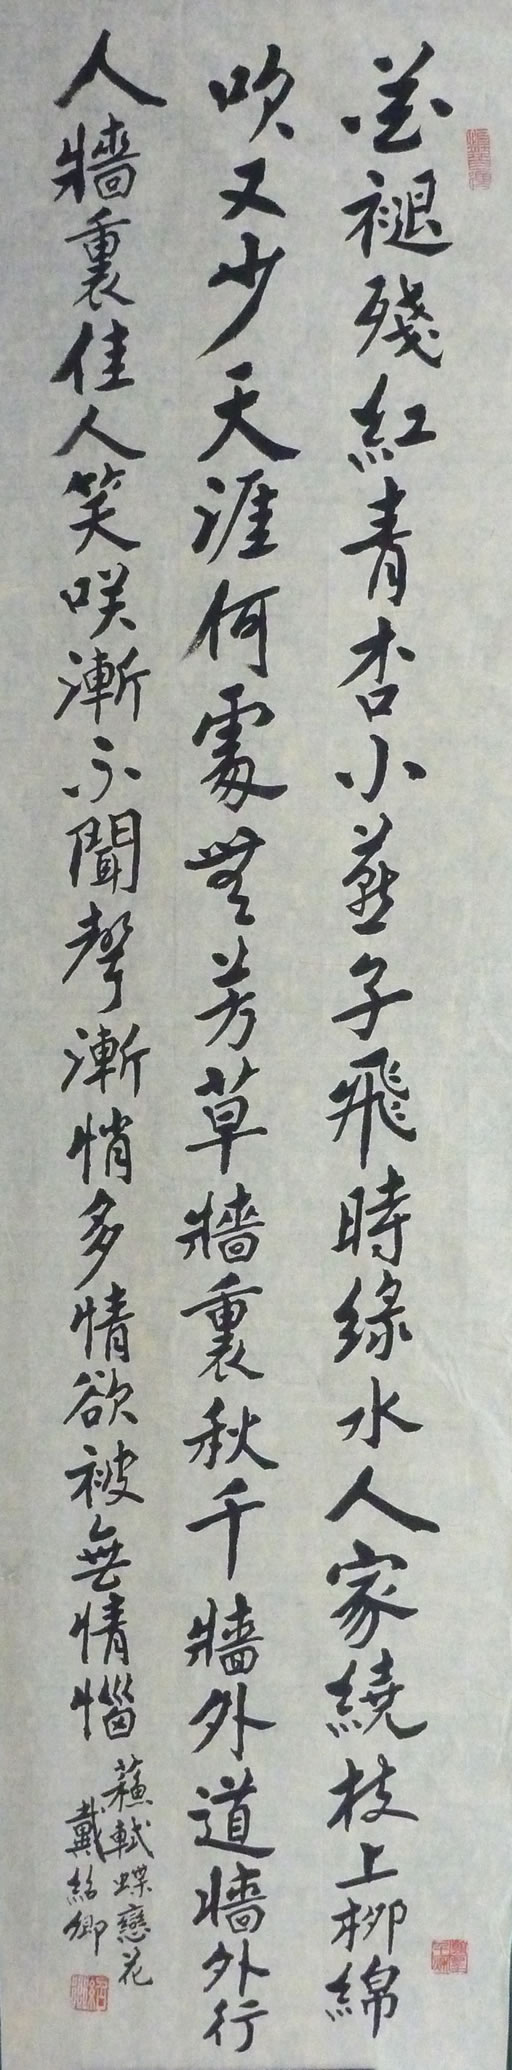 花褪殘紅青杏小燕子飛時綠水人家繞枝上柳綿
吹又少天涯何處無芳草牆裏秋千牆外道牆外行
人牆裏佳人笑咲漸不聞聲漸悄多情欲被無情惱
蘓軾蝶戀花
戴紹卿